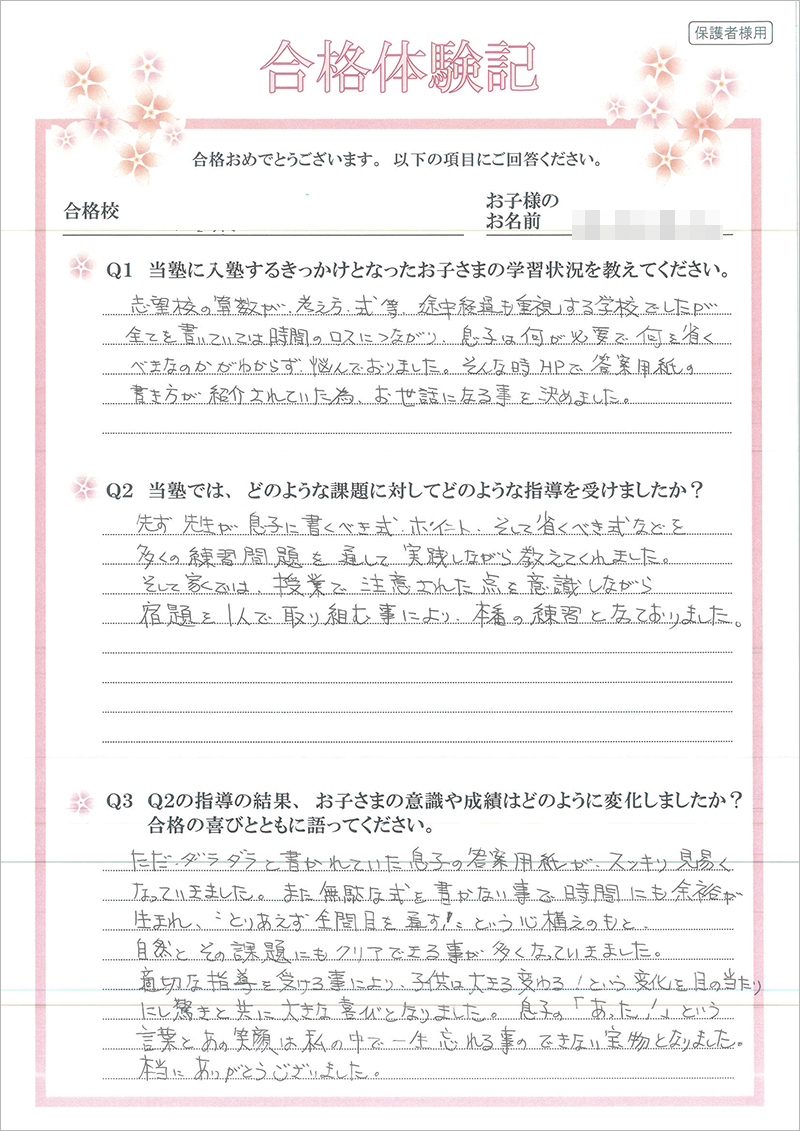 保護者様用
合格体験記
合格おめでとうございます。以下の項目にご回答ください。
合格校
お子様の
お名前
Q1 当塾に入塾するきっかけとなったお子さまの学習状況を教えてください。
志望校の算数が、考え方・式等、途中経過も重視する学校でしたが
全てを書いていては時間のロスにつながり、息子は何が必要で何を省く
べきなのかがわからず、悩んでおりました。そんな時HPで答案用紙の
書き方が紹介されていた為、お世話になる事を決めました。
Q2 当塾では、どのような課題に対してどのような指導を受けましたか？
先ず先生が息子に書くべき式、ポイント、そして省くべき式などを
多くの練習問題を通して実践しながら教えてくれました。
そして家では、授業で注意された点を意識しながら
宿題を1人で取り組む事により、本番の練習となっておりました。
Q3 Q2の指導の結果、お子さまの意識や成績はどのように変化しましたか？
合格の喜びとともに語ってください。
ただ、ダラダラと書かれていた息子の答案用紙が、スッキリ見易く
なっていきました。また無駄な式を書かない事で時間にも余裕が
生まれ、"とりあえず全問目を通す!"という心構えのもと、
自然とその課題にもクリアできる事が多くなっていきました。
適切な指導を受ける事により、子供は大きく変わる！という変化を目の当たり
にし驚きと共に大きな喜びとなりました。息子の「あった！」という
言葉とあの笑顔は私の中で一生忘れる事のできない宝物となりました。
本当にありがとうございました。